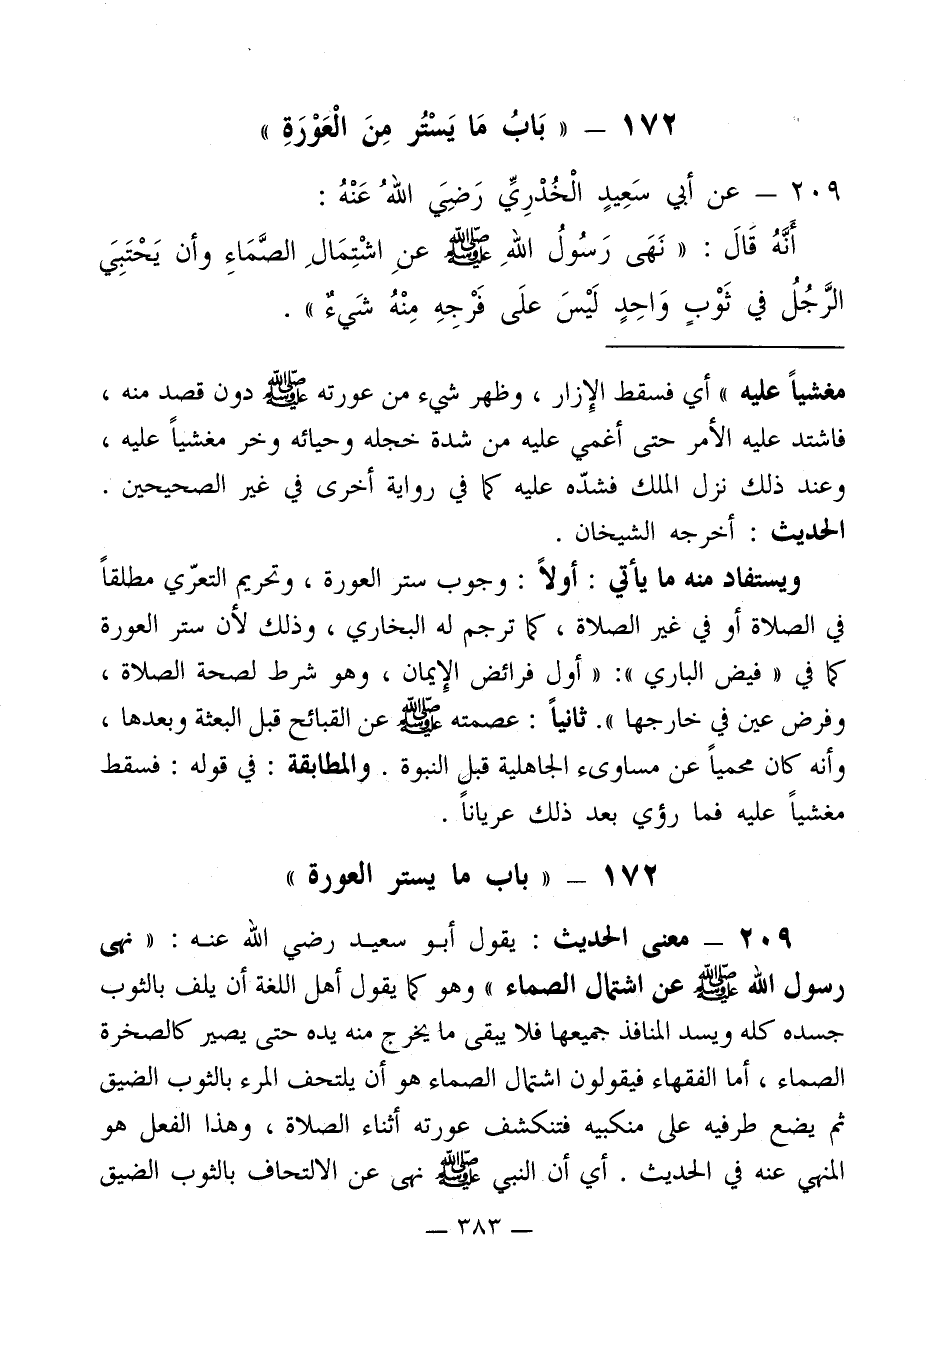 ١٧٢ – « بَابُ مَا يَسْتُر مِنَ الْعَوْرَةِ »
٢٠٩ – عن أبي سَعِيدٍ الْخُدْرِيِّ رَضِيَ اللهُ عَنْهُ :
أَنَّهُ قَالَ : « نَهَى رَسُولُ اللهِ ﷺ عنِ اشْتِمَالِ الصَّمَاءِ وأن يَحْتَبِيَ
الرَّجُلُ في ثَوْبٍ وَاحِدٍ لَيْسَ علَى فَرْجِهِ مِنْهُ شَيءٌ » .
مغشياً عليه » أي فسقط الإزار ، وظهر شيء من عورته ﷺ دون قصد منه ،
فاشتد عليه الأمر حتى أغمي عليه من شدة خجله وحيائه وخر مغشياً عليه ،
وعند ذلك نزل الملك فشدّه عليه كما في رواية أخرى في غير الصحيحين .
الحديث : أخرجه الشيخان .
ويستفاد منه ما يأتي : أولاً : وجوب ستر العورة ، وتحريم التعرّي مطلقاً
في الصلاة أو في غير الصلاة ، كما ترجم له البخاري ، وذلك لأن ستر العورة
كما في « فيض الباري »: « أول فرائض الإيمان ، وهو شرط لصحة الصلاة ،
وفرض عين في خارجها ». ثانياً : عصمته ﷺ عن القبائح قبل البعثة وبعدها ،
وأنه كان محمياً عن مساوىء الجاهلية قبل النبوة . والمطابقة : في قوله : فسقط
مغشياً عليه فما رؤي بعد ذلك عرياناً .
١٧٢ – « باب ما يستر العورة »
٢٠٩ – معنى الحديث : يقول أبو سعيد رضي الله عنه : « نهى
رسول الله ﷺ عن اشتمال الصماء » وهو كما يقول أهل اللغة أن يلف بالثوب
جسده كله ويسد المنافذ جميعها فلا يبقى ما يخرج منه يده حتى يصير كالصخرة
الصماء ، أما الفقهاء فيقولون اشتمال الصماء هو أن يلتحف المرء بالثوب الضيق
ثم يضع طرفيه على منكبيه فتنكشف عورته أثناء الصلاة ، وهذا الفعل هو
المنهي عنه في الحديث . أي أن النبي ﷺ نهى عن الالتحاف بالثوب الضيق
– ٣٨٣ –